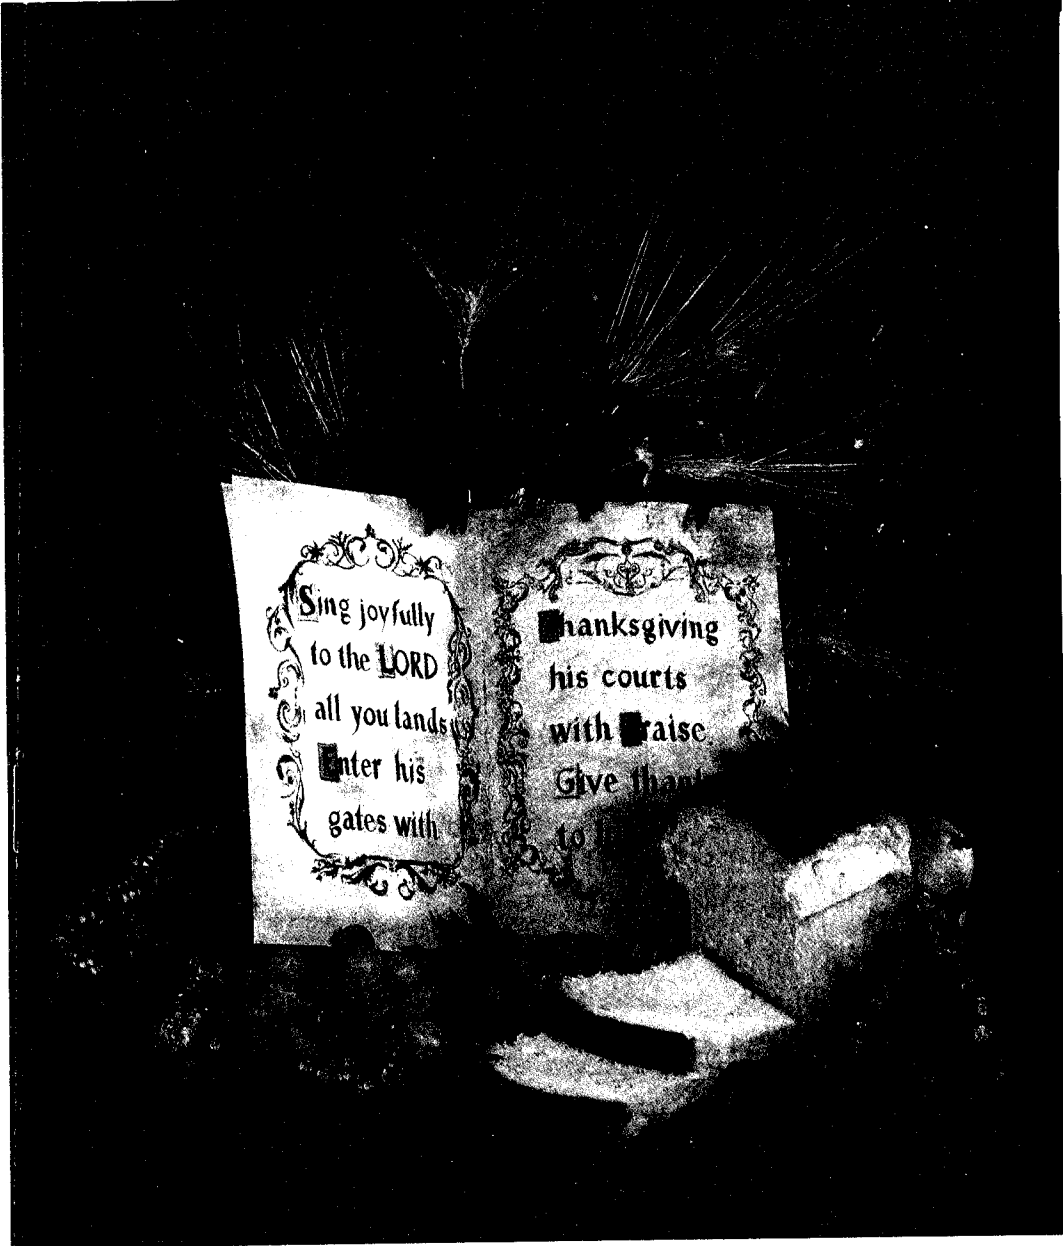 Sing joyfully
to the LORD
all you lands
Enter his
gates with
Thanksgiving
his courts
with Praise
Give
to